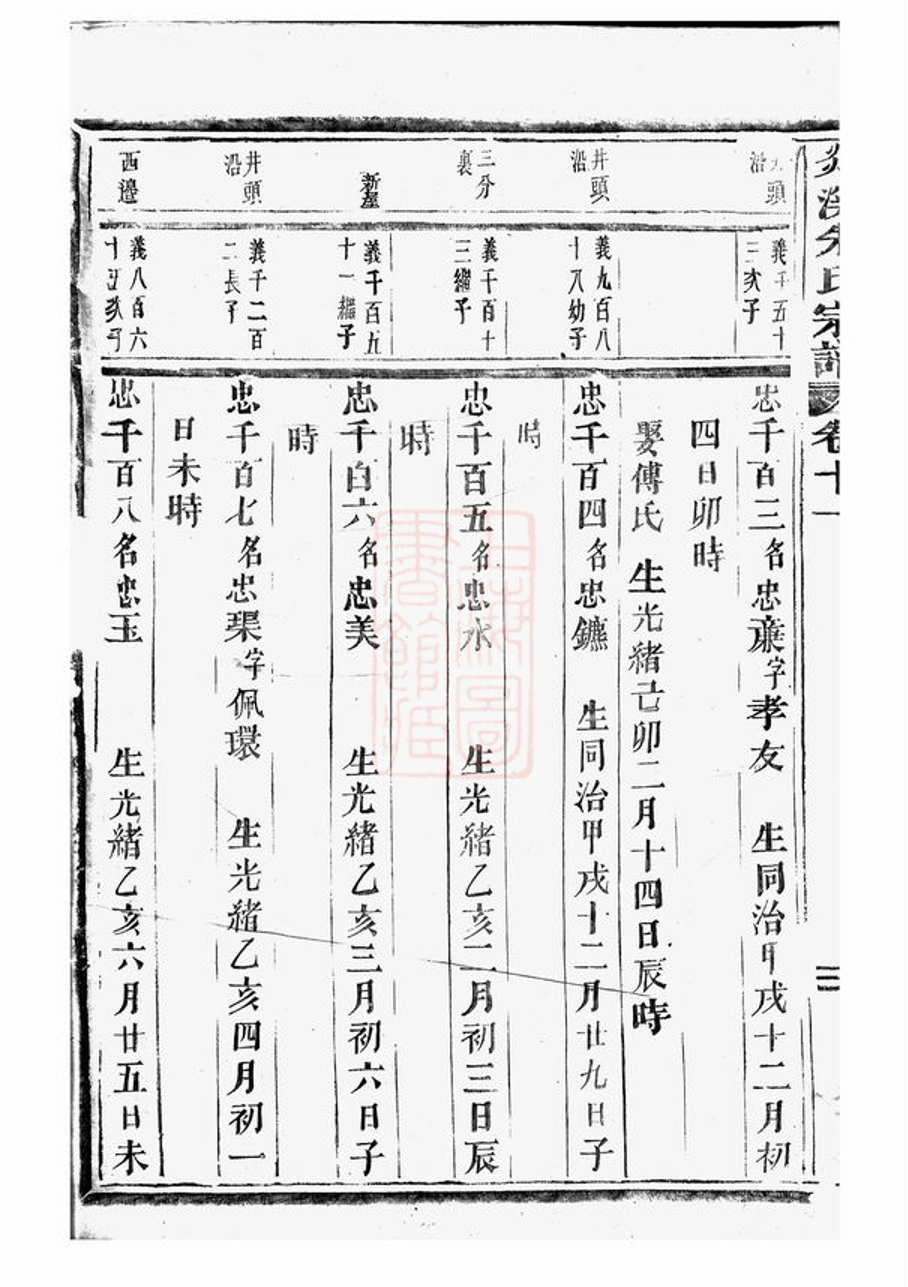 朱氏宗譜 卷十一
頭沿
義千五十
三次子
忠千百三名忠蠊字孝友 生同治甲戌十二月初
四日卯時
娶傅氏 生光緒己卯二月十四日辰時
井頭沿
義九百八
十八幼子
忠千百四名忠鑣 生同治甲戌十二月廿九日子
時
三分裏
義千百十
三繼子
忠千百五名忠水 生光緒乙亥二月初三日辰
時
新屋
義千百五
十一繼子
忠千百六名忠美 生光緒乙亥三月初六日子
時
井頭沿
義千二百
二長子
忠千百七名忠琹字佩環 生光緒乙亥四月初一
日未時
西邊
義八百六
十五次子
忠千百八名忠玉 生光緒乙亥六月廿五日未
上海圖書館藏